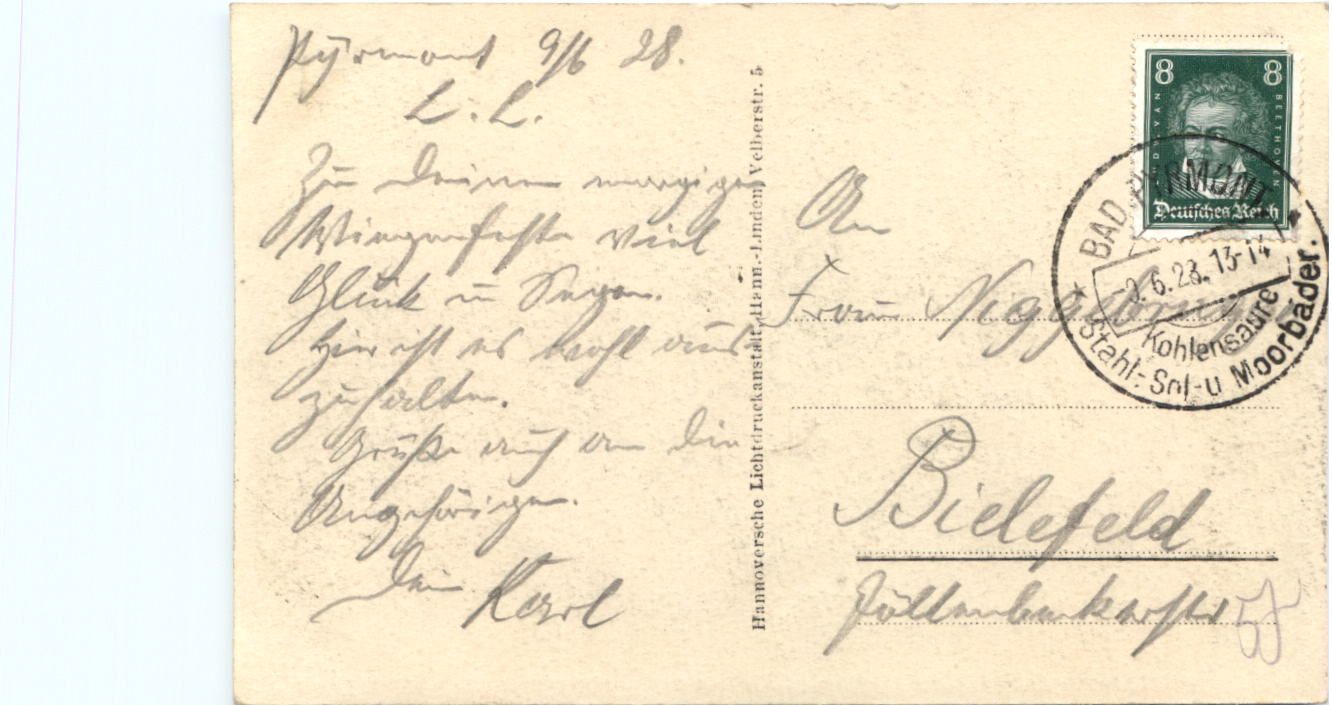 Pyrmont 9/6 28.
L. L.
Zu Deinem morgigen
Wiegenfeste viel
Glück u Segen.
Hier ist es wohl aus
zuhalten.
Grüße auch an die
Angehörigen.
Dein Karl
Hannoversche Lichtdruckanstalt, Hann.-Linden, Velberstr. 5
8 8
LUDWIG VAN BEETHOVEN
Deutsches Reich
BAD PYRMONT
9.6.28. 13-14
Kohlensäure
Stahl- Sol- u Moorbäder.
An
Frau
Bielefeld